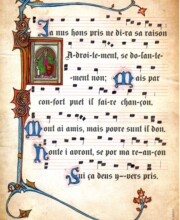 Ja nus hons pris ne di-ra sa raison
A-droi-le-ment, se do-lan-te-
-ment non; Mais par
con-fort puet il fai-re chan-çon.
Mout ai amis, mais povre sunt li don.
Honte i avront, se por ma re-an-çon
Sui ça deus y-vers pris.